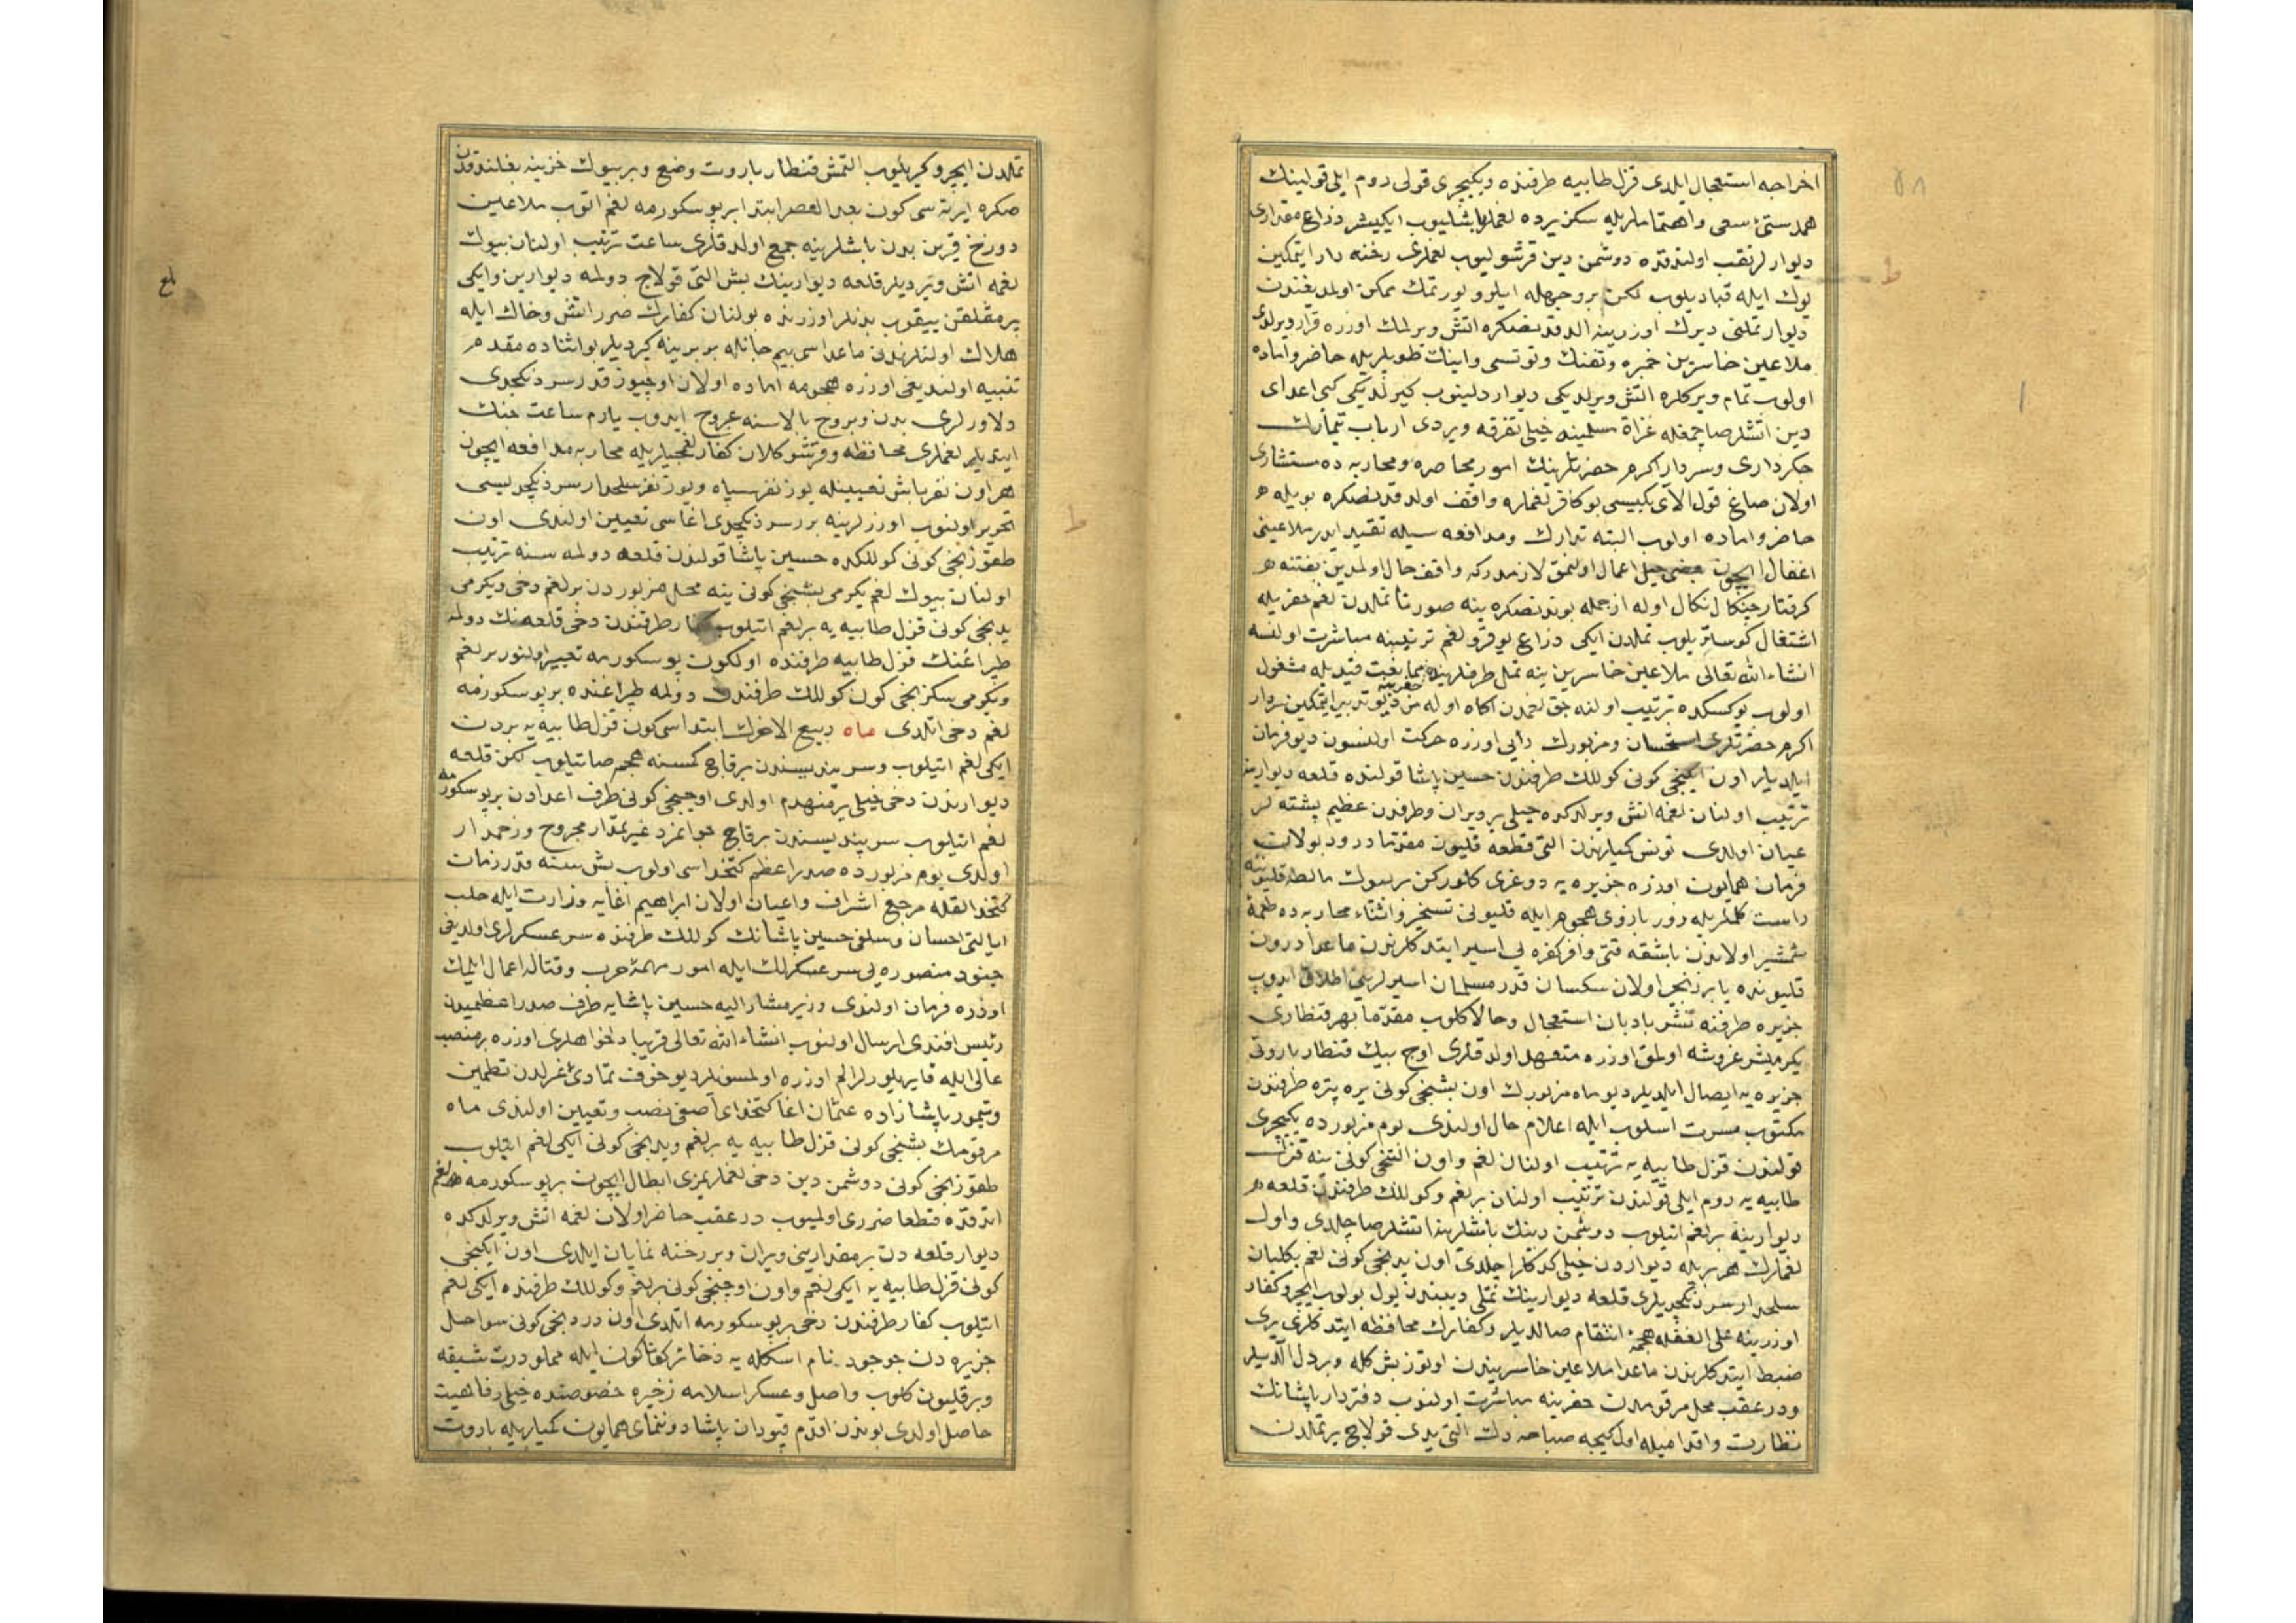 ٥٨
اخراجه استعجال ایلدی قزل طابیه طرفنده ویکیچری قولی روم ایلی قولینك
همدستئ سعی واهتماملریله سکز یرده لغملر باشلیوب ایکیشر ذراع مقداری
دیوارلر نقب اولندقده دوشمن دین قرشولیوب لغملری رخنه دار ایتمکین
دیوار تملنی دیرك اوزرینه الدقدنصکره اتش ویرلمك اوزره قرار ویرلدی
ملاعین خاسرین خمبره وتفنك وطوپلریله حاضر واماده
اولوب تمام ویرکلره اتش ویرلدیکی دیوار دلینوب کیرلدیکی کبی اعدای
دین اتشلر صاچمغله غزاة مسلمینه خیلی تفرقه ویردی ارباب تیمارك
جکرداری وسردار اکرم حضرتلرینك امور محاصره ومحاربه ده مستشاری
اولان صاغ قول الای بکیسی بو کافر لغملره واقف اولدقدنصکره بویله
حاضر واماده اولوب البته تدارك ومدافعه سیله تقید ایدر ملاعینی
اغفال ایچون بعض حیل اعمال اولنمق لازمدرکه واقف حال اولمدین بغتة
کرفتار چنکال نکال اوله ازجمله بوندنصکره ینه صورتا تملدن لغم حفریله
اشتغال کوستریلوب تملدن ایکی ذراع یوقرو لغم ترتیبنه مباشرت اولنسه
انشاءالله تعالی ملاعین خاسرین ینه تمل طرفلرنده ممانعت قیدیله مشغول
اولوب یوکسکده ترتیب اولنه جق لغمدن اکاه اوله مز دیو تدبیر ایتمکین سردار
اکرم حضرتلری استحسان ومزبورك رأیی اوزره حرکت اولنسون دیو فرمان
ایلدیلر اون ایکنجی کونی کوللك طرفندن حسین پاشا قولنده قلعه دیوارینه
ترتیب اولنان لغمه اتش ویرلدکده خیلی یر ویران وطرفدن عظیم پشته لر
عیان اولدی تونس کمیلرندن التی قطعه قلیون مقدما درود بولات
فرمان همایون اوزره جزیره یه دوغری کلورکن بر بیوك مالطه قلیوننه
راست کلملریله زور بازوی هجوم ایله قلیونی تسخیر واثناء محاربه ده طعمۀ
شمشیر اولاندن باشقه قتی وافر کفره یی اسیر ایتدکلرندن ماعدا درون
قلیونده پا بزنجیر اولان سکسان قدر مسلمان اسیرلرینی اطلاق ایدوب
جزیره طرفنه نشر بادبان استعجال وحالا کلوب مقدما بهر قنطاری
یکرمیشر غروشه اولمق اوزره متعهد اولدقلری اوچ بیك قنطار باروتی
جزیره یه ایصال ایلدیلر دیو ماه مزبورك اون بشنجی کونی یره پتره طرفندن
مکتوب مسرت اسلوب ایله اعلام حال اولندی یوم مزبورده یکیچری
قولندن قزل طابیه یه ترتیب اولنان لغم واون التنجی کونی ینه قزل
طابیه یه روم ایلی قولندن ترتیب اولنان بر لغم وکوللك طرفندن قلعه
دیوارینه بر لغم اتیلوب دوشمن دینك باشلرینه اتشلر صاچلدی واول
لغملرك هر بریله دیواردن خیلی کدکلر اچلدی اون یدنجی کونی لغم بکلیان
سلحدار سردنکچدیلری قلعه دیوارینك تملی دیبندن یول بولوب ایچرو کفار
اوزرینه علی الغفله هجمۀ انتقام صالدیلر وکفارك محافظه ایتدکلری یری
ضبط ایتدکلرندن ماعدا ملاعین خاسریندن اوتوز بش کله وبر دل الدیلر
ودر عقب محل مرقومدن حفرینه مباشرت اولنوب دفتردار پاشانك
نظارت واقدامیله اول کیجه صباحه دك التی یدی قولاج یر تملدن
تملدن ایچرو کیریلوب التمش قنطار باروت وضع وبر بیوك خزینه بغلندقدن
صکره ایرته سی کون بعد العصر ابتدا بر پوسکورمه لغم اتوب ملاعین
دوزخ قرین بدن باشلرینه جمع اولدقلری ساعت ترتیب اولنان بیوك
لغمه اتش ویردیلر قلعه دیوارینك بش التی قولاج دولمه دیوارین وایکی
یرمقلقن ییقوب بدنلر اوزرنده بولنان کفارك صرر اتش وخاك ایله
هلاك اولنلرندن ماعداسی بیم جانله بربرینه کیردیلر بو اثناده مقدم
تنبیه اولندیغی اوزره هجومه اماده اولان اوچیوز قدر سردنکچدی
دلاورلری بدن وبروج بالاسنه عروج ایدوب یارم ساعت جنك
ایتدیلر لغملری محافظه وقرشو کلان کفار لغمجیلریله محاربه مدافعه ایچون
هر اون نفر باش تعیینیله یوز نفر سپاه ویوز نفر سلحدار سردنکچدیسی
تحریر اولنوب اوزرلرینه برر سردنکچدی اغاسی تعیین اولندی اون
طقوزنجی کونی کوللکده حسین پاشا قولندن قلعه دولمه سنه ترتیب
اولنان بیوك لغم یکرمی بشنجی کونی ینه محل مزبوردن بر لغم دخی ویکرمی
یدنجی کونی قزل طابیه یه بر لغم اتیلوب کفار طرفندن دخی قلعه نك دولمه
طپراغنك قزل طابیه طرفنده اولکون پوسکورمه تعبیر اولنور بر لغم
ویکرمی سکزنجی کون کوللك طرفندن دولمه طپراغنده بر پوسکورمه
لغم دخی اتلدی ماه ربیع الاخرك ابتداسی کون قزل طابیه یه بردن
ایکی لغم اتیلوب وسرپندیسندن برقاچ کمسنه هجوم صاتیلوب لکن قلعه
دیوارندن دخی خیلی یر منهدم اولدی اوچنجی کونی طرف اعدادن بر پوسکورمه
لغم اتیلوب سرپندیسندن برقاچ جوانمرد غیر مقدار مجروح وزخمدار
اولدی یوم مزبورده صدر اعظم کتخداسی اولوب بش سنه قدر زمان
کتخدالقله مرجع اشراف واعیان اولان ابراهیم اغایه وزارت ایله حلب
ایالتی احسان وسلفی حسین پاشانك کوللك طرفنده سرعسکرلری اولدیغی
جنود منصوره یی سرعسکرلك ایله امور مهمۀ حرب وقتاله اعمال ایلمك
اوزره فرمان اولندی وزیر مشار الیه حسین پاشایه طرف صدر اعظمیدن
رئیس افندی ارسال اولنوب انشاءالله تعالی قریبا دلخواهلری اوزره بر منصب
عالی ایله قایریلورلر الم اوزره اولمسونلر دیو خوف تمادئ غزلدن تطمین
وتیمور پاشازاده عثمان اغا کتخدای آصفی نصب وتعیین اولندی ماه
مرقومك بشنجی کونی قزل طابیه یه بر لغم ویدنجی کونی ایکی لغم اتیلوب
طقوزنجی کونی دوشمن دین دخی لغملریمزی ابطال ایچون بر پوسکورمه لغم
اتدقده قطعا ضرری اولمیوب در عقب حاضر اولان لغمه اتش ویرلدکده
دیوار قلعه دن بر مقدارینی ویران وبر رخنه نمایان ایلدی اون ایکنجی
کونی قزل طابیه یه ایکی لغم واون اوچنجی کونی بر لغم وکوللك طرفنده ایکی لغم
اتیلوب کفار طرفندن دخی بر پوسکورمه اتلدی اون دردنجی کونی سواحل
جزیره دن جوجود نام اسکله یه ذخائر کوناکون ایله مملو درت شیقه
وبر قلیون کلوب واصل وعسکر اسلامه زخیره خصوصنده خیلی رفاهیت
حاصل اولدی بوندن اقدم قپودان پاشا دوننمای همایون کمیلریله باروت